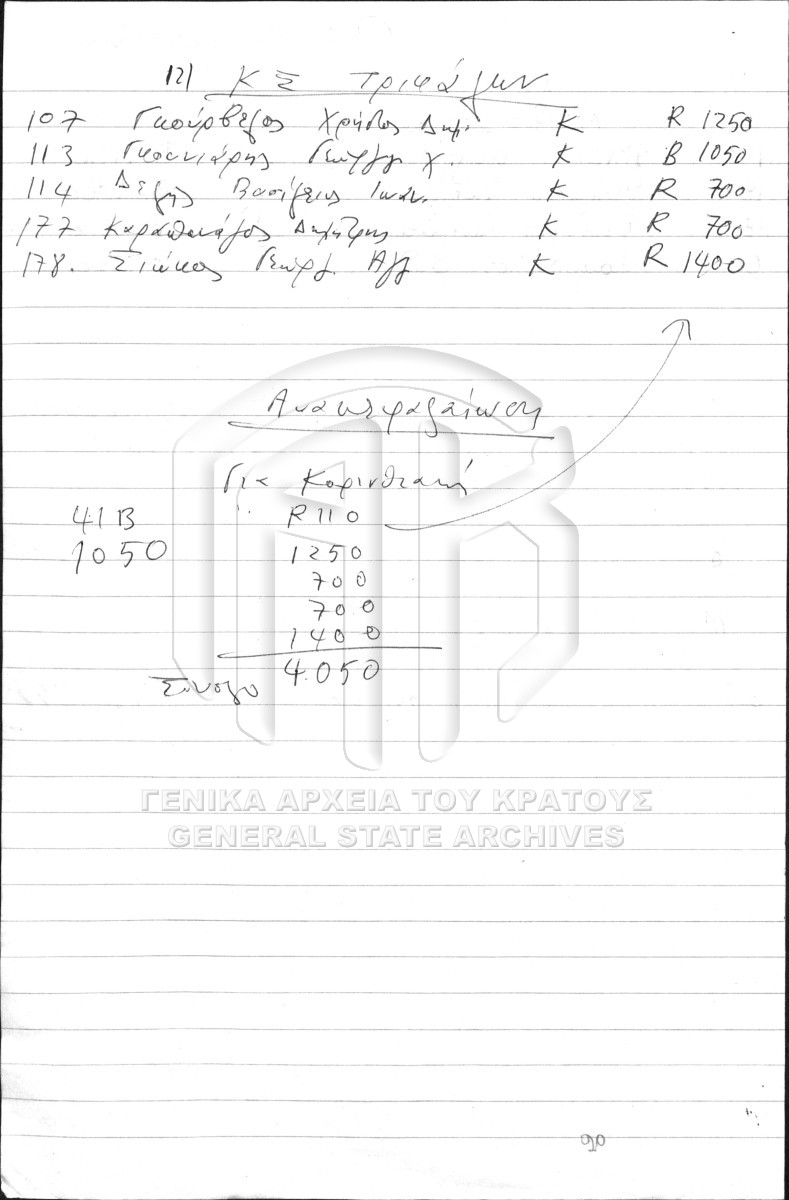 12) ΚΣ Τριφύλων
107 Γκούρβελος Χρήστος Δημ. Κ R 1250
113 Γεωργ. Χ. Κ B 1050
114 Δελής Βασίλειος Ιωάν. Κ R 700
177 Καραθανάσος Δημήτρης Κ R 700
178. Σιώκος Γεωργ. Κ R 1400
Ανακεφαλαίωση
Για Κορινθιακή
41 B R 110
1050 1250
700
700
1400
Σύνολο 4.050
ΓΕΝΙΚΑ ΑΡΧΕΙΑ ΤΟΥ ΚΡΑΤΟΥΣ
GENERAL STATE ARCHIVES